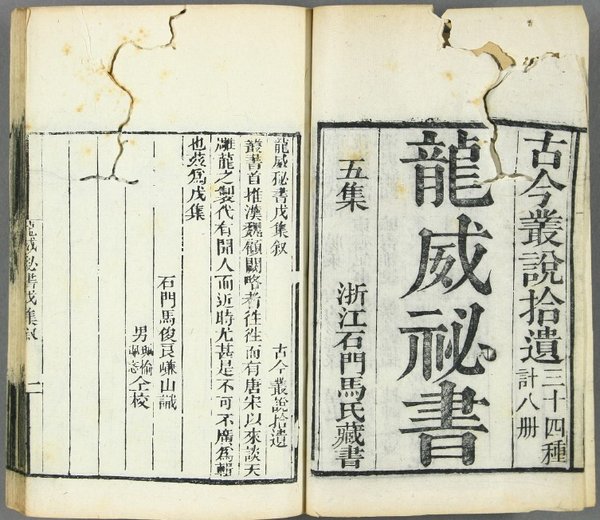 古今叢說拾遺
三十四種
計八册
龍威祕書
五集
浙江石門馬氏藏書
龍威秘書戊集叙
古今叢說拾遺
叢書首推漢魏顧闕略者往往而有唐宋以來談天
雕龍之製代有聞人而近時尤甚是不可不廣爲輯
也茲爲戊集
石門馬俊良嵰山識
男
仝校
龍威秘書戊集叙
一